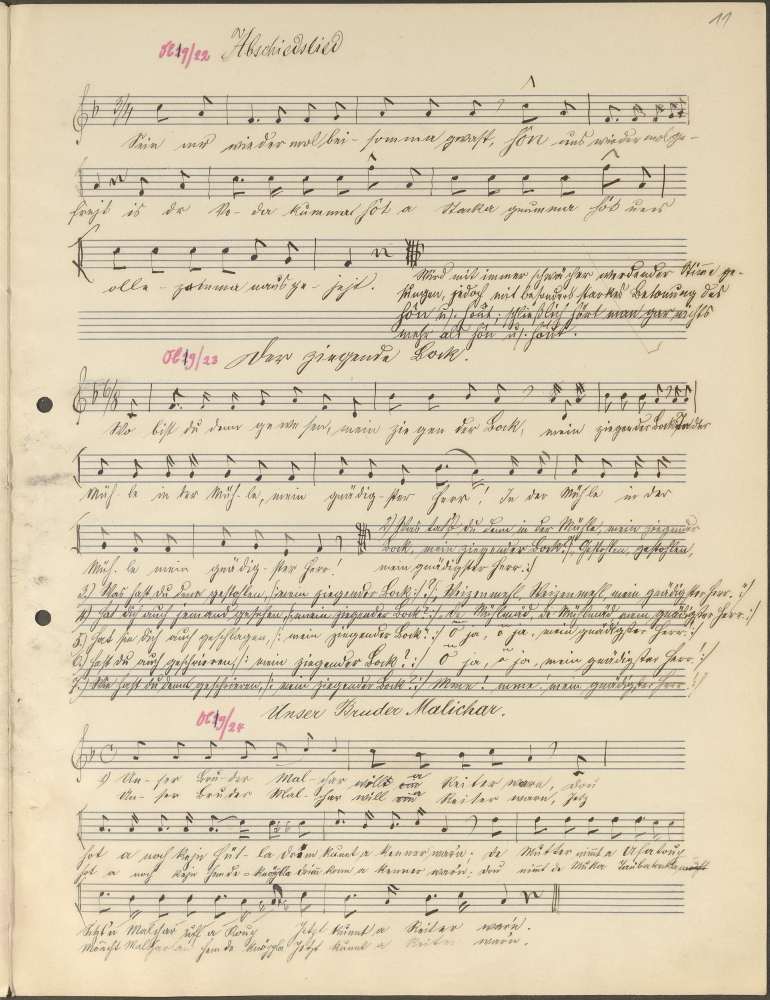 11
Ol 19/22 Abschiedslied
Sein mr wieder mol bei- somma gewast, hôn uns wieder mol ge-
frejt is dr Vo-da kumma hôt a Stacka gnumma hôt uns
olle- zomma naus ge- jejt.
Wird mit immer schwächer werdender Stimme ge-
sungen, jedoch mit besonders starker Betonung des
hôn u. hôut; schließlich hört man gar nichts
mehr als hôn u. hôut.
Ol 19/23 Der ziegende Bock.
Wo bist du denn ge we sen, mein zie gen der Bock, mein ziegender Bock? In der
Müh- le in der Müh- le, mein gnädig- ster Herr! In der Mühle in der
Müh- le mein gnädig- ster Herr!
2.) Was tatst du denn in der Mühle, mein ziegender
Bock, mein ziegender Bock? Gestohlen, gestohlen,
mein gnädigster Herr :/
3.) Was hast du denn gestohlen, /: mein ziegender Bock :/?, Weizenmehl, Weizenmehl, mein gnädigster Herr. :/
4.) Hat dich auch jemand gesehen, /: mein ziegender Bock? :/ De Mühlmäd, de Mühlmäd, mein gnädigster Herr :/
5.) Hat sie dich auch geschlagen, /: mein ziegender Bock? :/ O ja, o ja, mein gnädigster Herr :/
6.) Hast du auch geschrieen, /: mein ziegender Bock? :/ O ja, o ja, mein gnädigster Herr! :/
7.) Wie hast du denn geschrieen, /: mein ziegender Bock? :/ Mme! mme! mein gnädigster Herr! :/
Ol 19/24 Unser Bruder Malichar.
1) Un- ser Bru- der Mal- char wollt a Reiter warn, dou
Un- ser Bruder Mal- char will a Reiter warn, Jetz
hot a noch kejn Hüt- la drim kunnt a kenner warn; de Mutter nimt a
hot a noch kejn Hemde- knöppla drim konn a kenner warn; dou nimt de Muta
Setzt'n Malchar uf a Koup Jetzt kunnt a Reiter warn.
Mächt Malchar an Hemde knöppla Jetzt kunnt a Reiter warn.